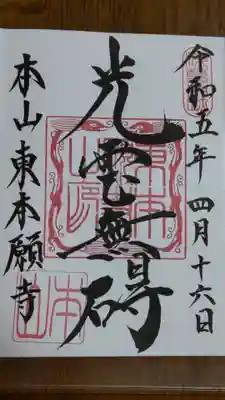 令和五年四月十六日
光雲無碍
本山東本願寺
本山